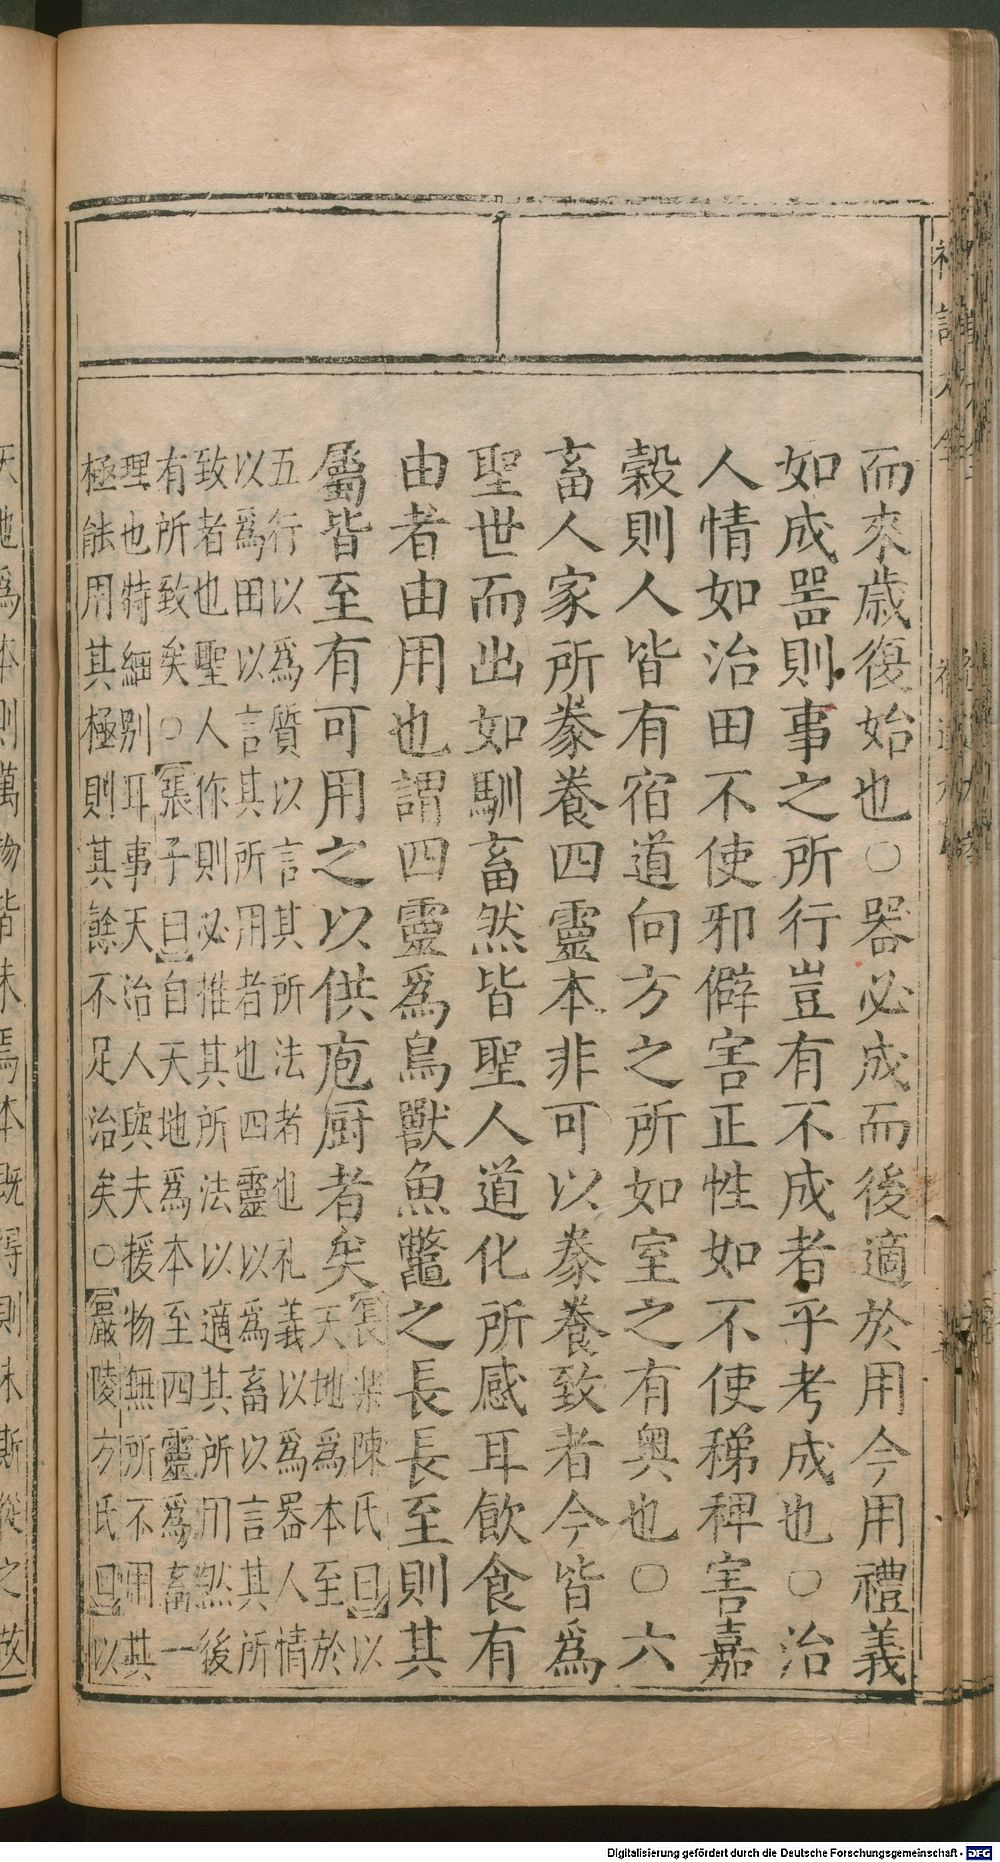 而來歲復始也○器必成而後適於用今用禮義
如成噐則事之所行豈有不成者乎考成也○治
人情如治田不使邪僻害正性如不使稊稗害嘉
穀則人皆有宿道向方之所如室之有奧也○六
畜人家所豢養四靈本非可以豢養致者今皆爲
聖世而出如馴畜然皆聖人道化所感耳飲食有
由者由用也謂四靈爲鳥獸魚鼈之長長至則其
屬皆至有可用之以供庖厨者矣
長樂陳氏曰以
天地爲本至於
五行以爲質以言其所法者也礼義以爲器人情
以爲田以言其所用者也四靈以爲畜以言其所
致者也聖人作則必推其所法以適其所用然後
有所致矣○張子曰自天地爲本至四靈爲畜一
理也特細別耳事天治人與夫援物無所不用其
極能用其極則其餘不足治矣○嚴陵方氏曰以
Digitalisierung gefördert durch die Deutsche Forschungsgemeinschaft - DFG